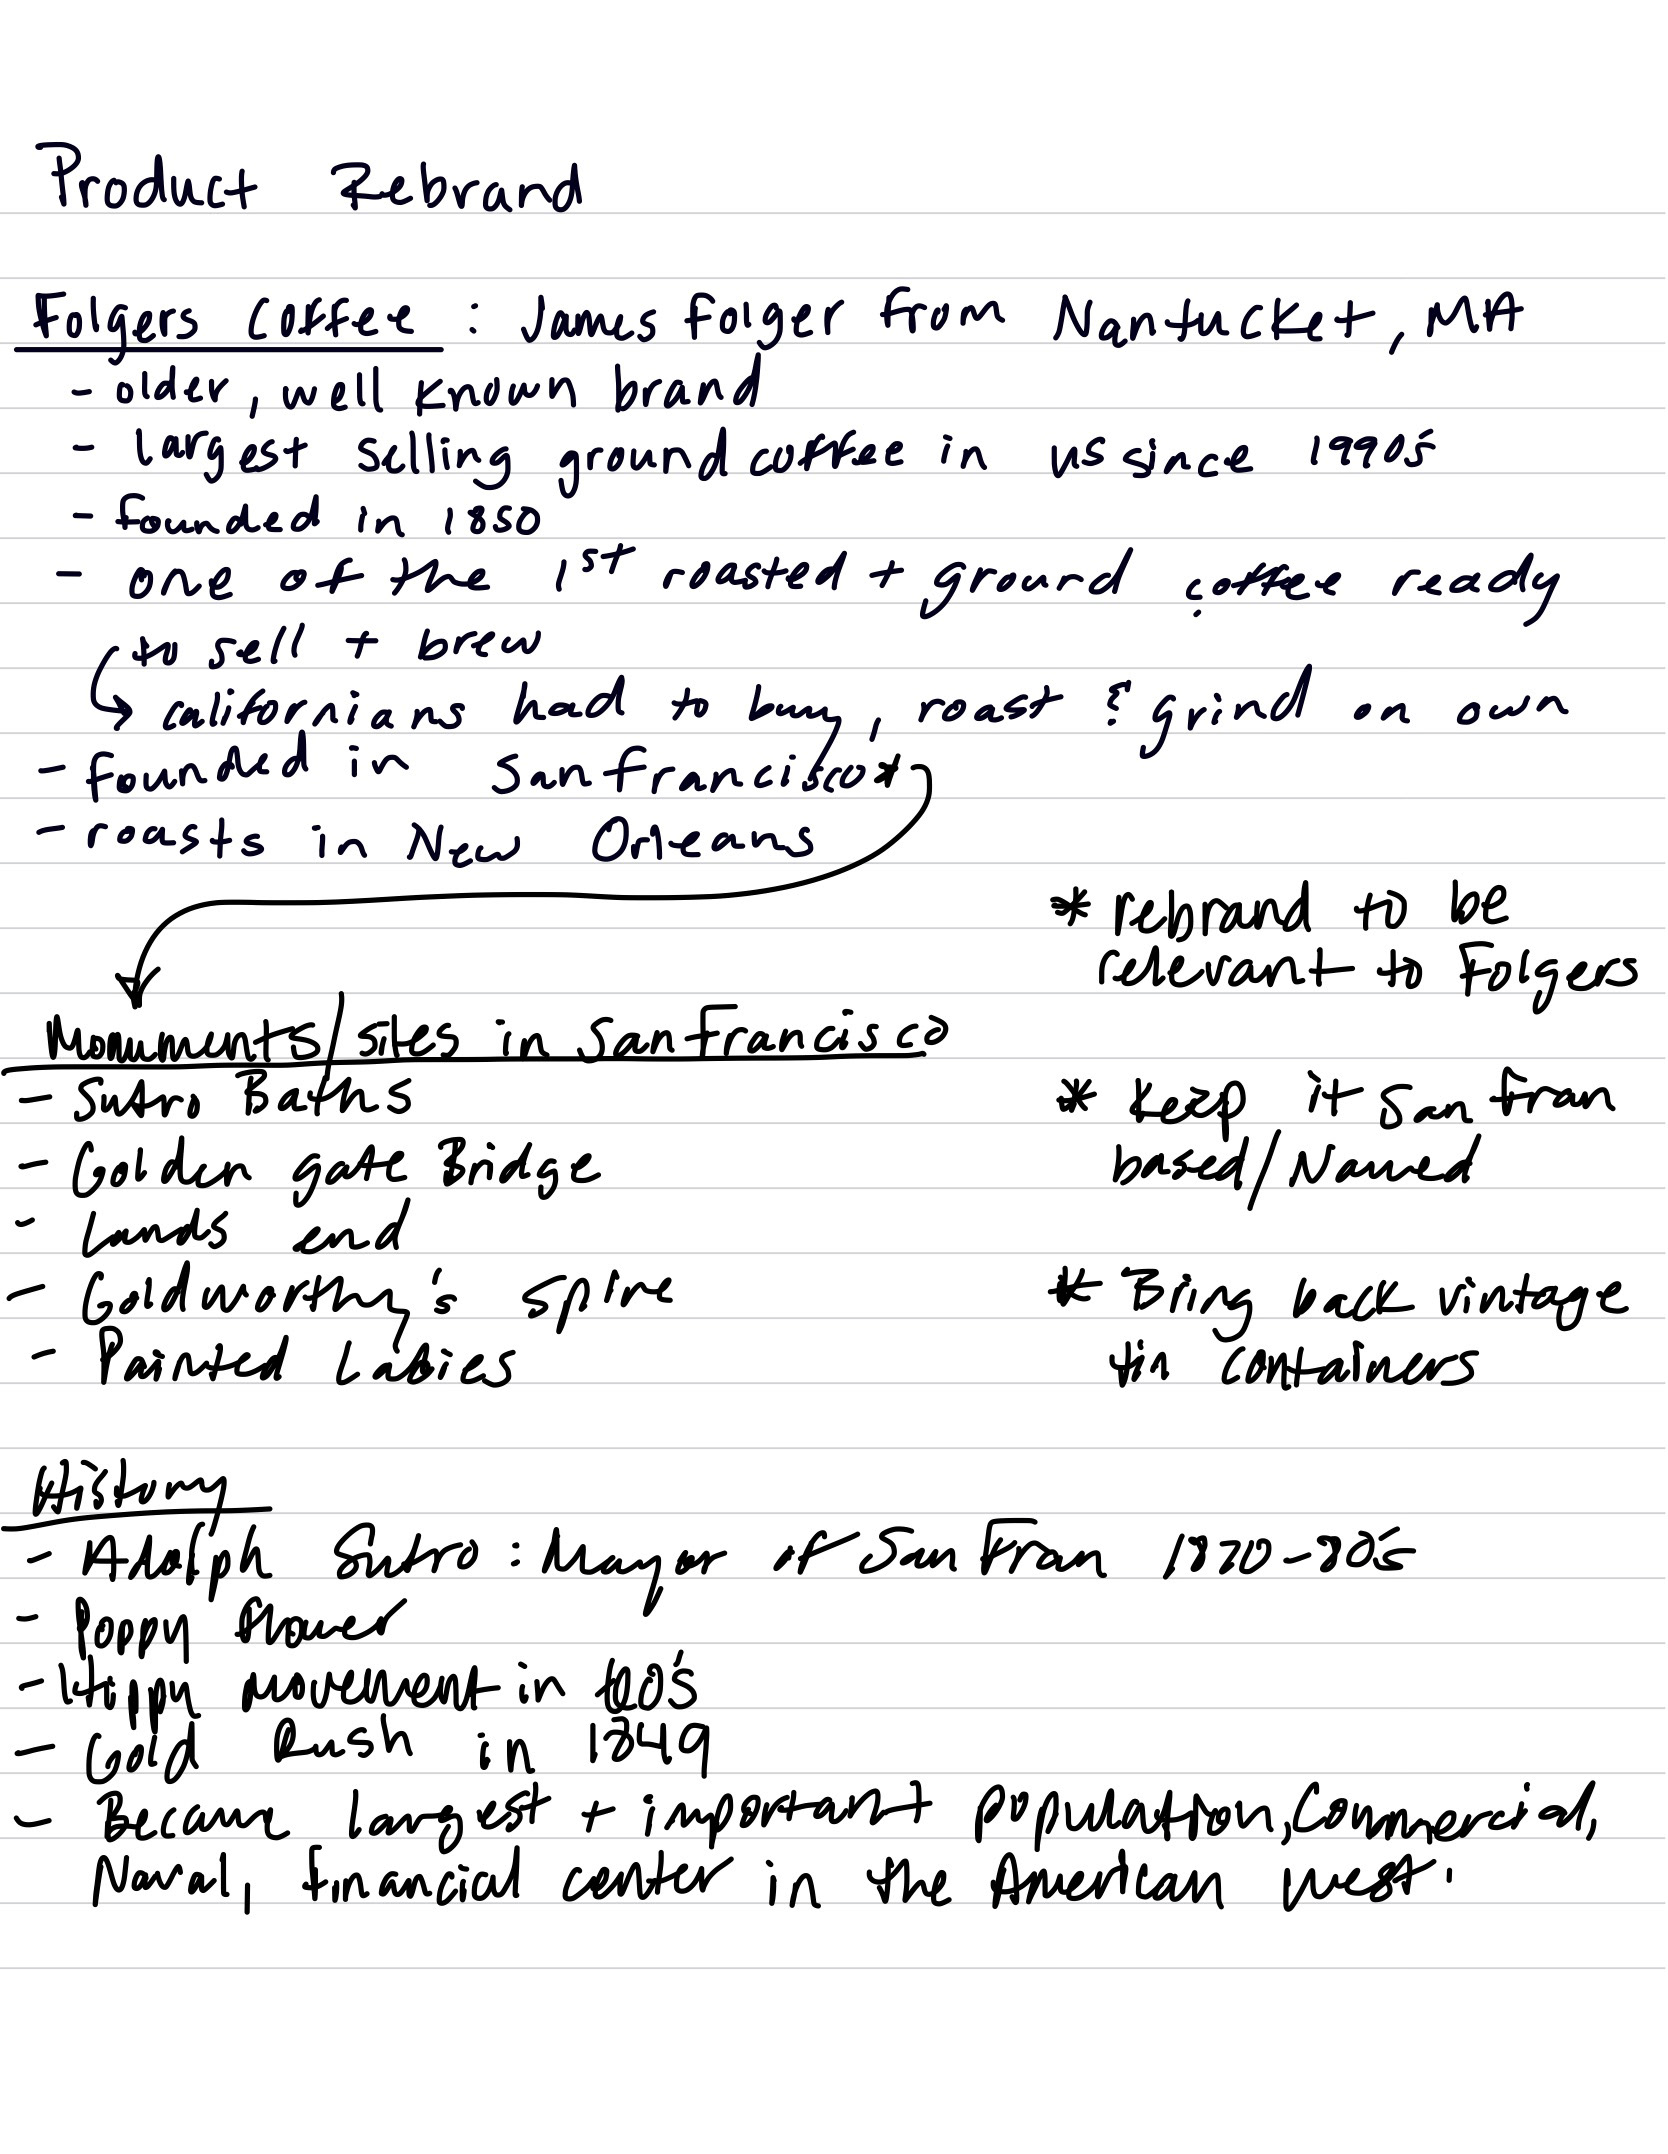 Product Rebrand
Folgers Coffee : James Folger from Nantucket, MA
- older, well known brand
- largest selling ground coffee in us since 1990's
- founded in 1850
- one of the 1st roasted + ground coffee ready
to sell + brew
↳ californians had to buy, roast & grind on own
- founded in San francisco*
- roasts in New Orleans
* rebrand to be
relevant to Folgers
Monuments/sites in San Francisco
- Sutro Baths
- Golden gate Bridge
- Lands end
- Goldworthy's spire
- Painted Ladies
* Keep it San fran
based/Named
* Bring back vintage
tin containers
History
- Adolph Sutro : Mayor of San Fran 1870-80's
- Poppy flower
- Hippy movement in 60's
- Gold Rush in 1849
- Became largest + important population, Commercial,
Naval, financial center in the American west.